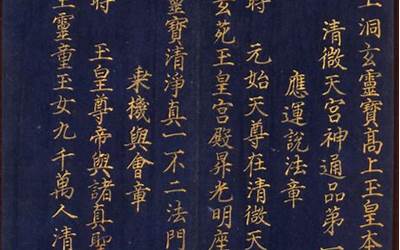 上洞玄靈寶高上玉皇本
清微天宮神通品第一
應運說法章
時 元始天尊在清微天
玄苑王皇宮殿昇光明座
靈寶清淨真一不二法門
乘機與會章
時 王皇尊帝與諸真聖
王靈童王女九千萬人清